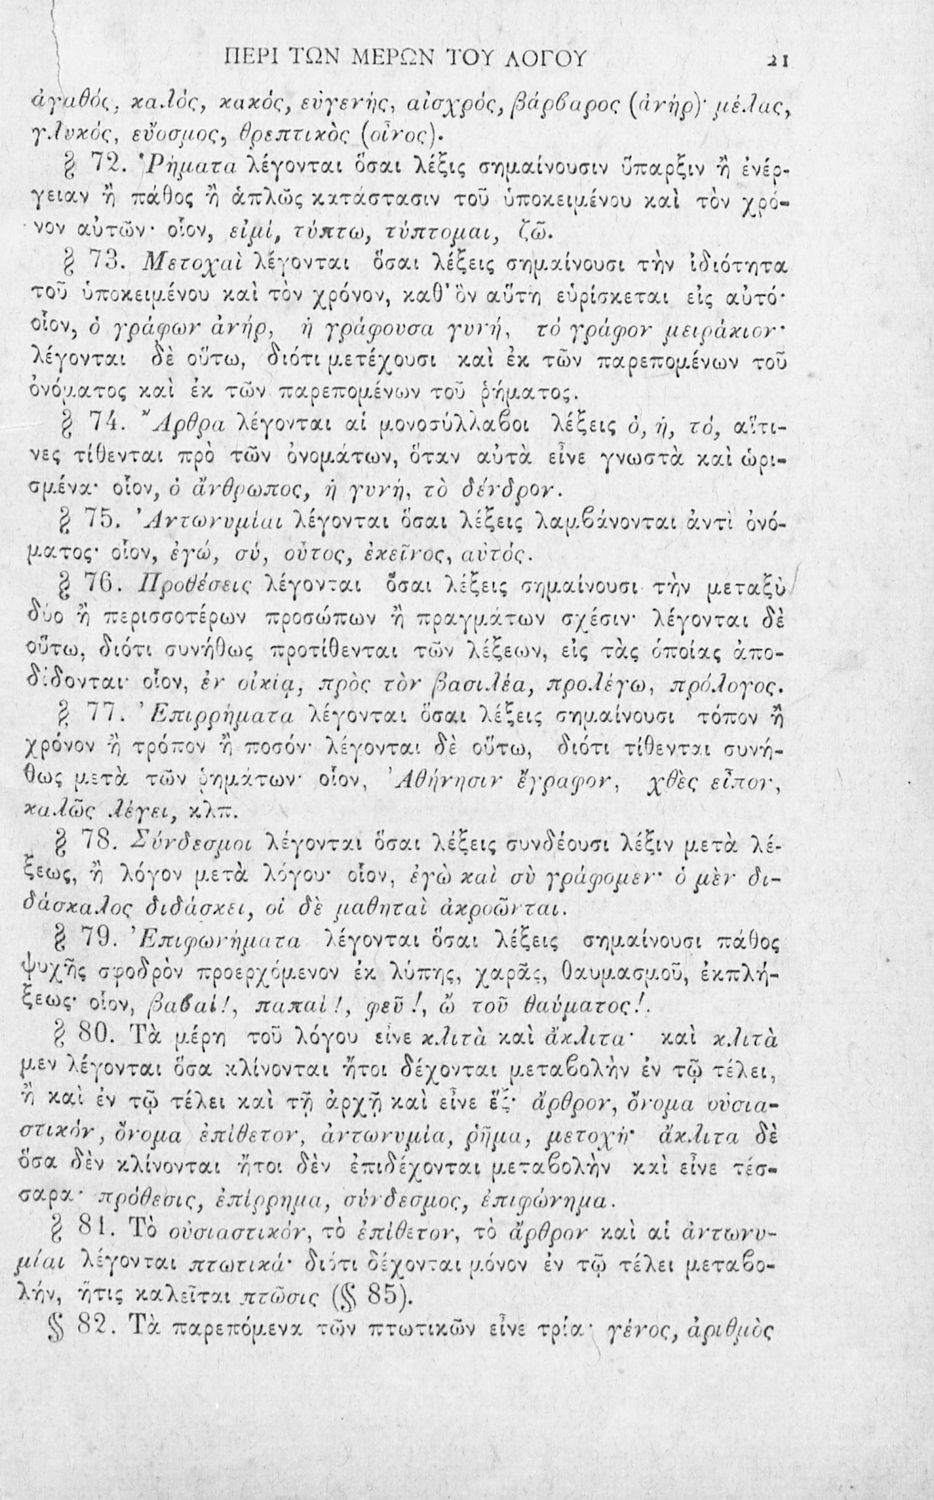 ΠΕΡΙ ΤΩΝ ΜΕΡΩΝ ΤΟΥ ΛΟΓΟΥ 21
ἀγαθός, καλός, κακός, εὐγενής, αἰσχρός, βάρβαρος (ἀνήρ)· μέλας,
γλυκός, εὔοσμος, θρεπτικὸς (οἶνος).
§ 72. Ῥήματα λέγονται ὅσαι λέξις σημαίνουσιν ὕπαρξιν ἢ ἐνέρ-
γειαν ἢ πάθος ἢ ἁπλῶς κατάστασιν τοῦ ὑποκειμένου καὶ τὸν χρό-
νον αὐτῶν· οἷον, εἰμί, τύπτω, τύπτομαι, ζῶ.
§ 73. Μετοχαὶ λέγονται ὅσαι λέξεις σημαίνουσι τὴν ἰδιότητα
τοῦ ὑποκειμένου καὶ τὸν χρόνον, καθ' ὃν αὕτη εὑρίσκεται εἰς αὐτό·
οἷον, ὁ γράφων ἀνήρ, ἡ γράφουσα γυνή, τὸ γράφον μειράκιον·
λέγονται δὲ οὕτω, διότι μετέχουσι καὶ ἐκ τῶν παρεπομένων τοῦ
ὀνόματος καὶ ἐκ τῶν παρεπομένων τοῦ ῥήματος.
§ 74. Ἄρθρα λέγονται αἱ μονοσύλλαβοι λέξεις ὁ, ἡ, τό, αἵτι-
νες τίθενται πρὸ τῶν ὀνομάτων, ὅταν αὐτὰ εἶνε γνωστὰ καὶ ὡρι-
σμένα· οἷον, ὁ ἄνθρωπος, ἡ γυνή, τὸ δένδρον.
§ 75. Ἀντωνυμίαι λέγονται ὅσαι λέξεις λαμβάνονται ἀντὶ ὀνό-
ματος· οἷον, ἐγώ, σύ, οὗτος, ἐκεῖνος, αὐτός.
§ 76. Προθέσεις λέγονται ὅσαι λέξεις σημαίνουσι τὴν μεταξὺ
δύο ἢ περισσοτέρων προσώπων ἢ πραγμάτων σχέσιν· λέγονται δὲ
οὕτω, διότι συνήθως προτίθενται τῶν λέξεων, εἰς τὰς ὁποίας ἀπο-
δίδονται· οἷον, ἐν οἰκίᾳ, πρὸς τὸν βασιλέα, προλέγω, πρόλογος.
§ 77. Ἐπιρρήματα λέγονται ὅσαι λέξεις σημαίνουσι τόπον ἢ
χρόνον ἢ τρόπον ἢ ποσόν· λέγονται δὲ οὕτω, διότι τίθενται συνή-
θως μετὰ τῶν ῥημάτων· οἷον, Ἀθήνησιν ἔγραφον, χθὲς εἶπον,
καλῶς λέγει, κλπ.
§ 78. Σύνδεσμοι λέγονται ὅσαι λέξεις συνδέουσι λέξιν μετὰ λέ-
ξεως, ἢ λόγον μετὰ λόγου· οἷον, ἐγὼ καὶ σὺ γράφομεν· ὁ μὲν δι-
δάσκαλος διδάσκει, οἱ δὲ μαθηταὶ ἀκροῶνται.
§ 79. Ἐπιφωνήματα λέγονται ὅσαι λέξεις σημαίνουσι πάθος
ψυχῆς σφοδρὸν προερχόμενον ἐκ λύπης, χαρᾶς, θαυμασμοῦ, ἐκπλή-
ξεως· οἷον, βαβαί!, παπαί!, φεῦ!, ὢ τοῦ θαύματος!.
§ 80. Τὰ μέρη τοῦ λόγου εἶνε κλιτὰ καὶ ἄκλιτα· καὶ κλιτὰ
μεν λέγονται ὅσα κλίνονται ἤτοι δέχονται μεταβολὴν ἐν τῷ τέλει,
ἢ καὶ ἐν τῷ τέλει καὶ τῇ ἀρχῇ καὶ εἶνε ἕξ· ἄρθρον, ὄνομα οὐσια-
στικόν, ὄνομα ἐπίθετον, ἀντωνυμία, ῥῆμα, μετοχή· ἄκλιτα δὲ
ὅσα δὲν κλίνονται ἤτοι δὲν ἐπιδέχονται μεταβολὴν καὶ εἶνε τέσ-
σαρα· πρόθεσις, ἐπίρρημα, σύνδεσμος, ἐπιφώνημα.
§ 81. Τὸ οὐσιαστικόν, τὸ ἐπίθετον, τὸ ἄρθρον καὶ αἱ ἀντωνυ-
μίαι λέγονται πτωτικά· διότι δέχονται μόνον ἐν τῷ τέλει μεταβο-
λήν, ἥτις καλεῖται πτῶσις (§ 85).
§ 82. Τὰ παρεπόμενα τῶν πτωτικῶν εἶνε τρία· γένος, ἀριθμὸς